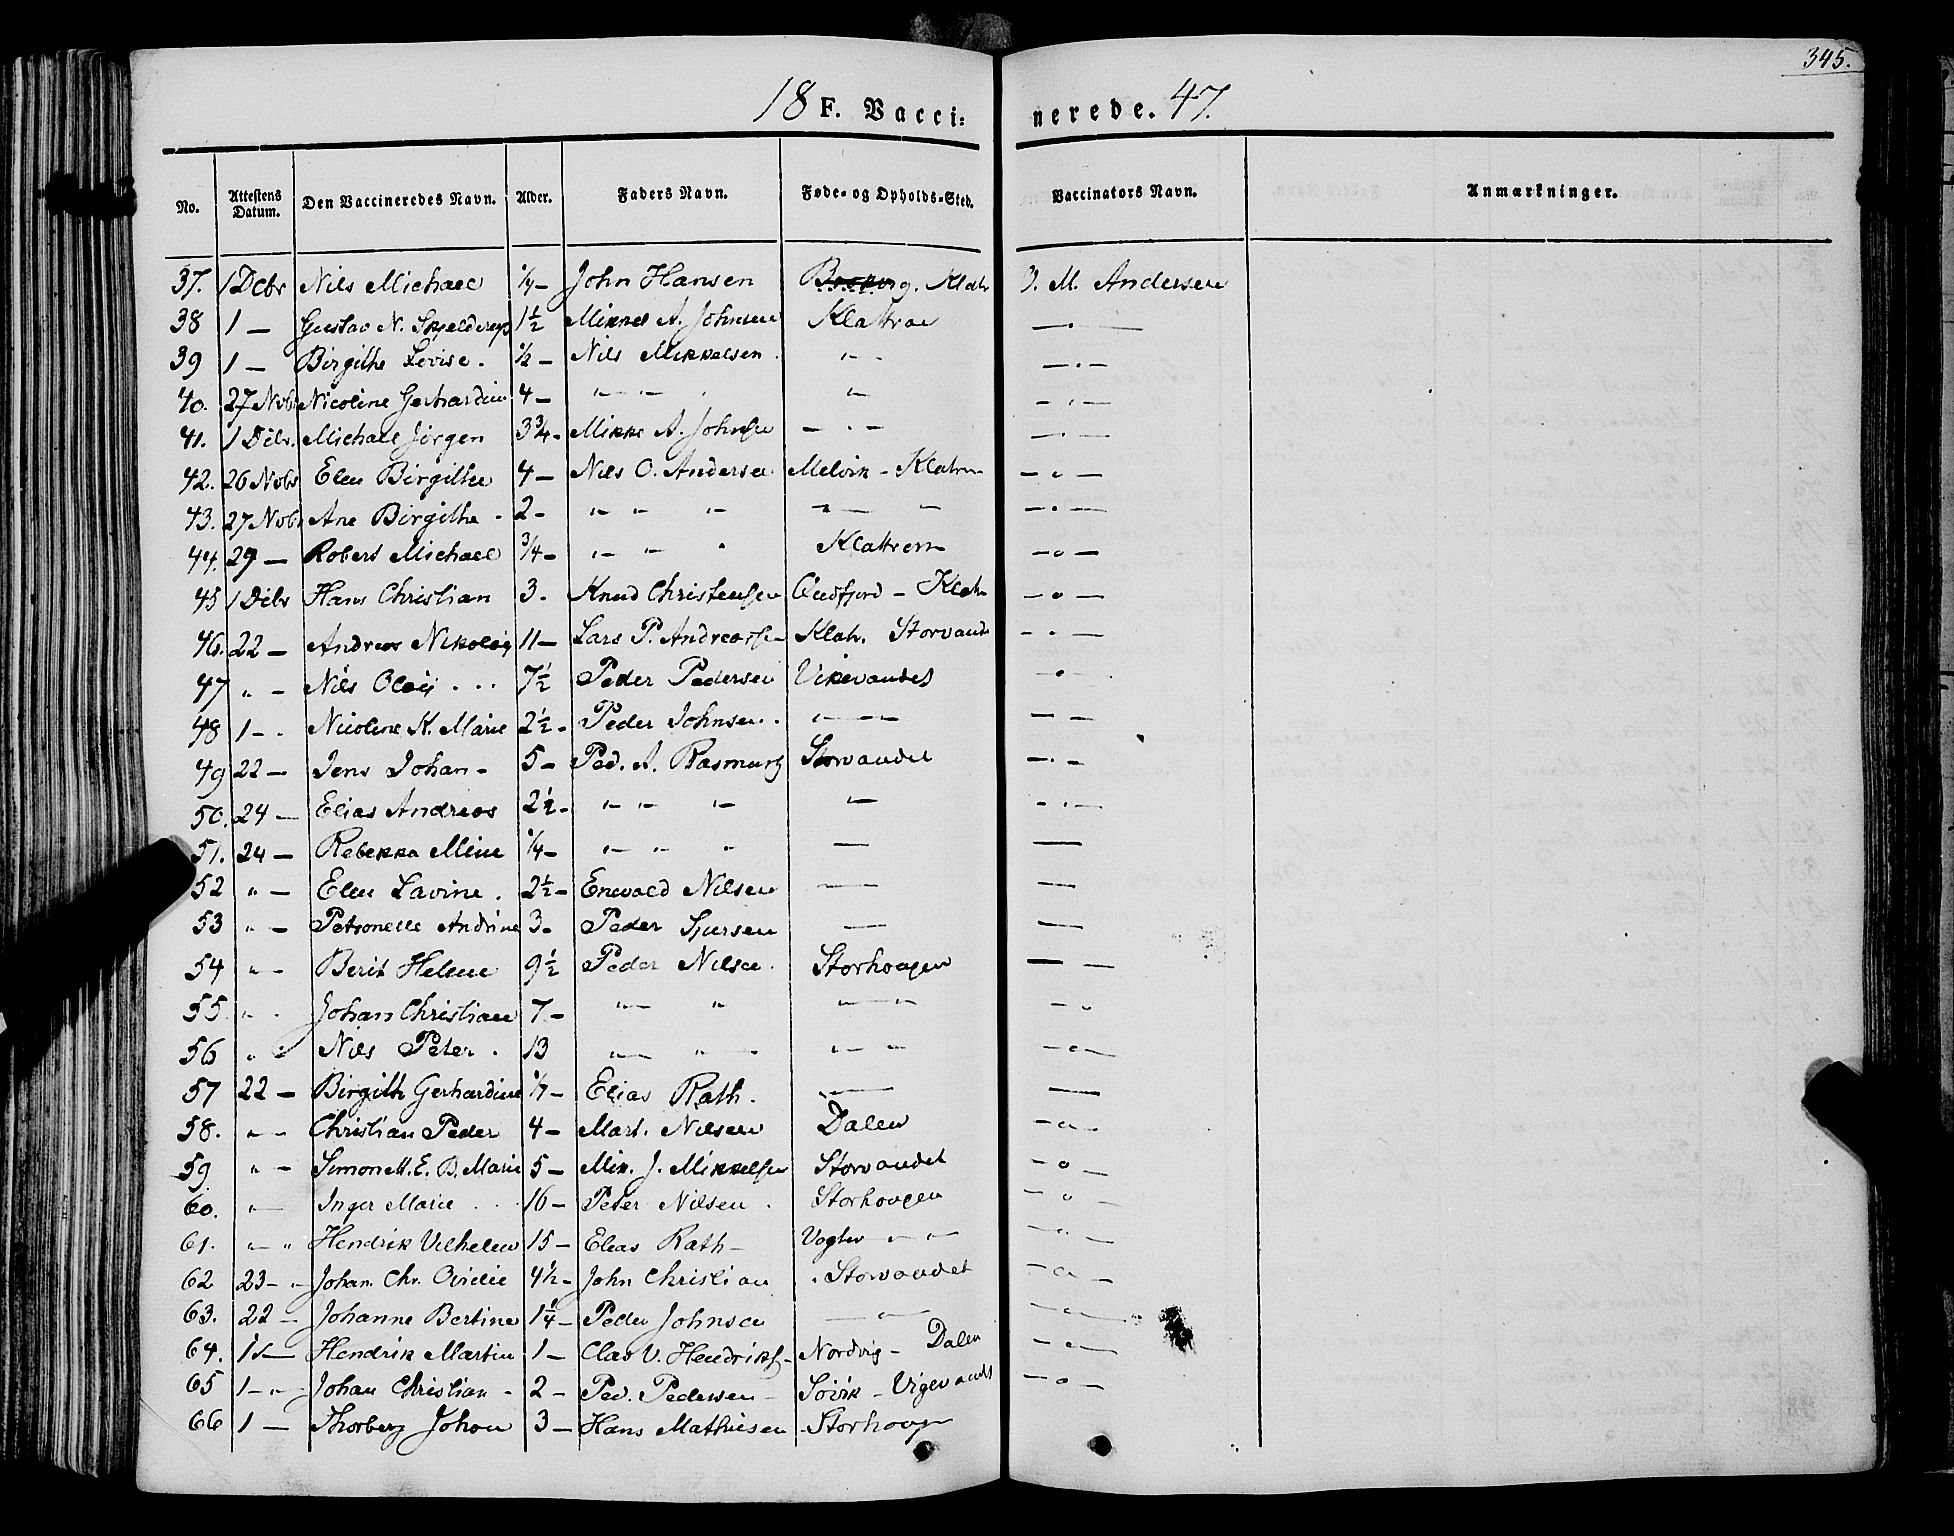 345.
18 F. Vacci: nerede. 47.
No. Attestens Datum. Den Vaccineredes Navn. Alder. Faders Navn. Føde- og Opholds-Sted. Vaccinators Navn. Anmærkninger.
37. 1 Dcbr Nils Michael John Hansen Klatr M. Andersen
38 1 — Gustav N. Skjelderup 1½ Mikkel A. Johnsen Klattran — " —
39 1 — Birgithe Levise. ½ — Nils Mikkelsen. " - — " —
40. 27 Nvbr Nicoline Gerhardine 4 — " — " — " — — " —
41. 1 Dcbr. Michael Jørgen 3¾ - Mikke A. Johnsen — " — — " —
42. 26 Nvbr Elen Birgithe 4 — Nils O. Andersen Melvik - Klatrn — " —
43. 27 Nvbr Ane Birgithe - 2 - " — " — " — " — " — — " —
44. 29 — Robert Michael ¾ - " — " — " Klattrern — " —
45 1 Dcbr Hans Christian 3. Knud Christensen - Klatr — " —
46. 22 — Andreas Nikolaij 11 — Lars P. Andreassen Klatr. Storvandt — " —
47 " — Nils Olaij . . . 7½ Peder Pedersen Vikevandet — " —
48 1 - . Nicoline K. Marie 2½ - Peder Johnsen. . " — " — — " —
49 22 — Jens Johan - 5 - Ped. A. Rasmuss Storvandet — " —
50. 24 — Elias Andreas 2½ - " — " — " — " — — " —
51. 24 — Rebekka Mine ¼ - " — " — " — —
52 " — Elen Lavine. 2½ - Enevald Nilsen — —
53 " — Petronelle Andrine 3 - Peder Sjursen — —
54 " - Berit Helene 9½ Peder Nilsen. Storhougen — —
55. " . Johan Christian 7 - " — " " — " — - "
56 " " Nils Peter. 13 " — " — " — " — — " —
57 22 — Birgith Gerhardine Elias Rath. — —
58. " - Christian Peder 4 - Mart. Nilsen Dalen — " —
59 " - Simon M. E. B. Marie 5 - Mik. J. Mikkelsen Storvandet — " —
60. " — Inger Marie . . 16 - Peter Nilsen. Storhougen — " —
61. " — " Hendrik Vilhelm 15 - Elias Rath - " — " — — " —
62 23 - " Johan. Chr. 4½ - John Christian . Storvandet — " —
63. 22 — Johanne Bertine 1¼ - Peder Johnsen — " — — " —
64. — Hendrik Martin 1 - Clas V. Hendriks - Nordvig - Dalen — " —
65 1 - " - Johan Christian - 2 - Ped. Pedersen - Søvik - Vigevandt — " —
66 1 — Thorberg Johan 3 - Hans Mathisen - Storhoug